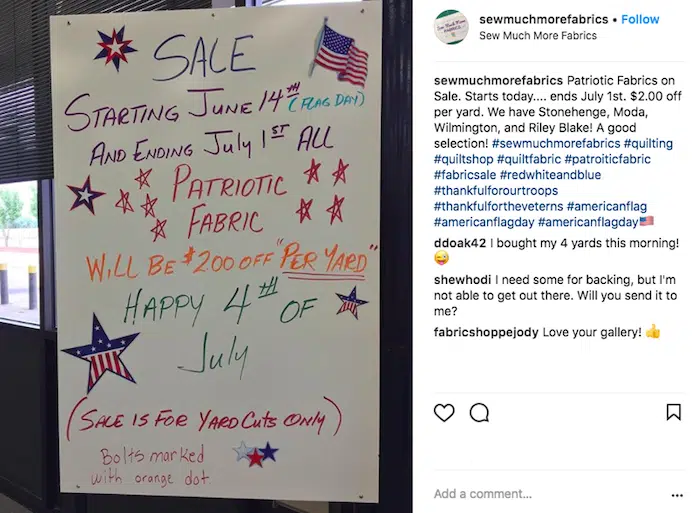 SALE
STARTING JUNE 14TH (FLAG DAY)
AND ENDING July 1ST ALL
PATRIOTIC
FABRIC
WILL BE $200 OFF "PER YARD"
HAPPY 4TH OF
July
(SALE IS FOR YARD CUTS ONLY)
Bolts marked
with orange dot.
sewmuchmorefabrics • Follow
Sew Much More Fabrics
sewmuchmorefabrics Patriotic Fabrics on
Sale. Starts today.... ends July 1st. $2.00 off
per yard. We have Stonehenge, Moda,
Wilmington, and Riley Blake! A good
selection! #sewmuchmorefabrics #quilting
#quiltshop #quiltfabric #patroiticfabric
#fabricsale #redwhiteandblue
#thankfulforourtroops
#thankfulfortheveterns #americanflag
#americanflagday #americanflagday🇺🇸
ddoak42 I bought my 4 yards this morning!
😜
shewhodi I need some for backing, but I'm
not able to get out there. Will you send it to
me?
fabricshoppejody Love your gallery! 👍
Add a comment...